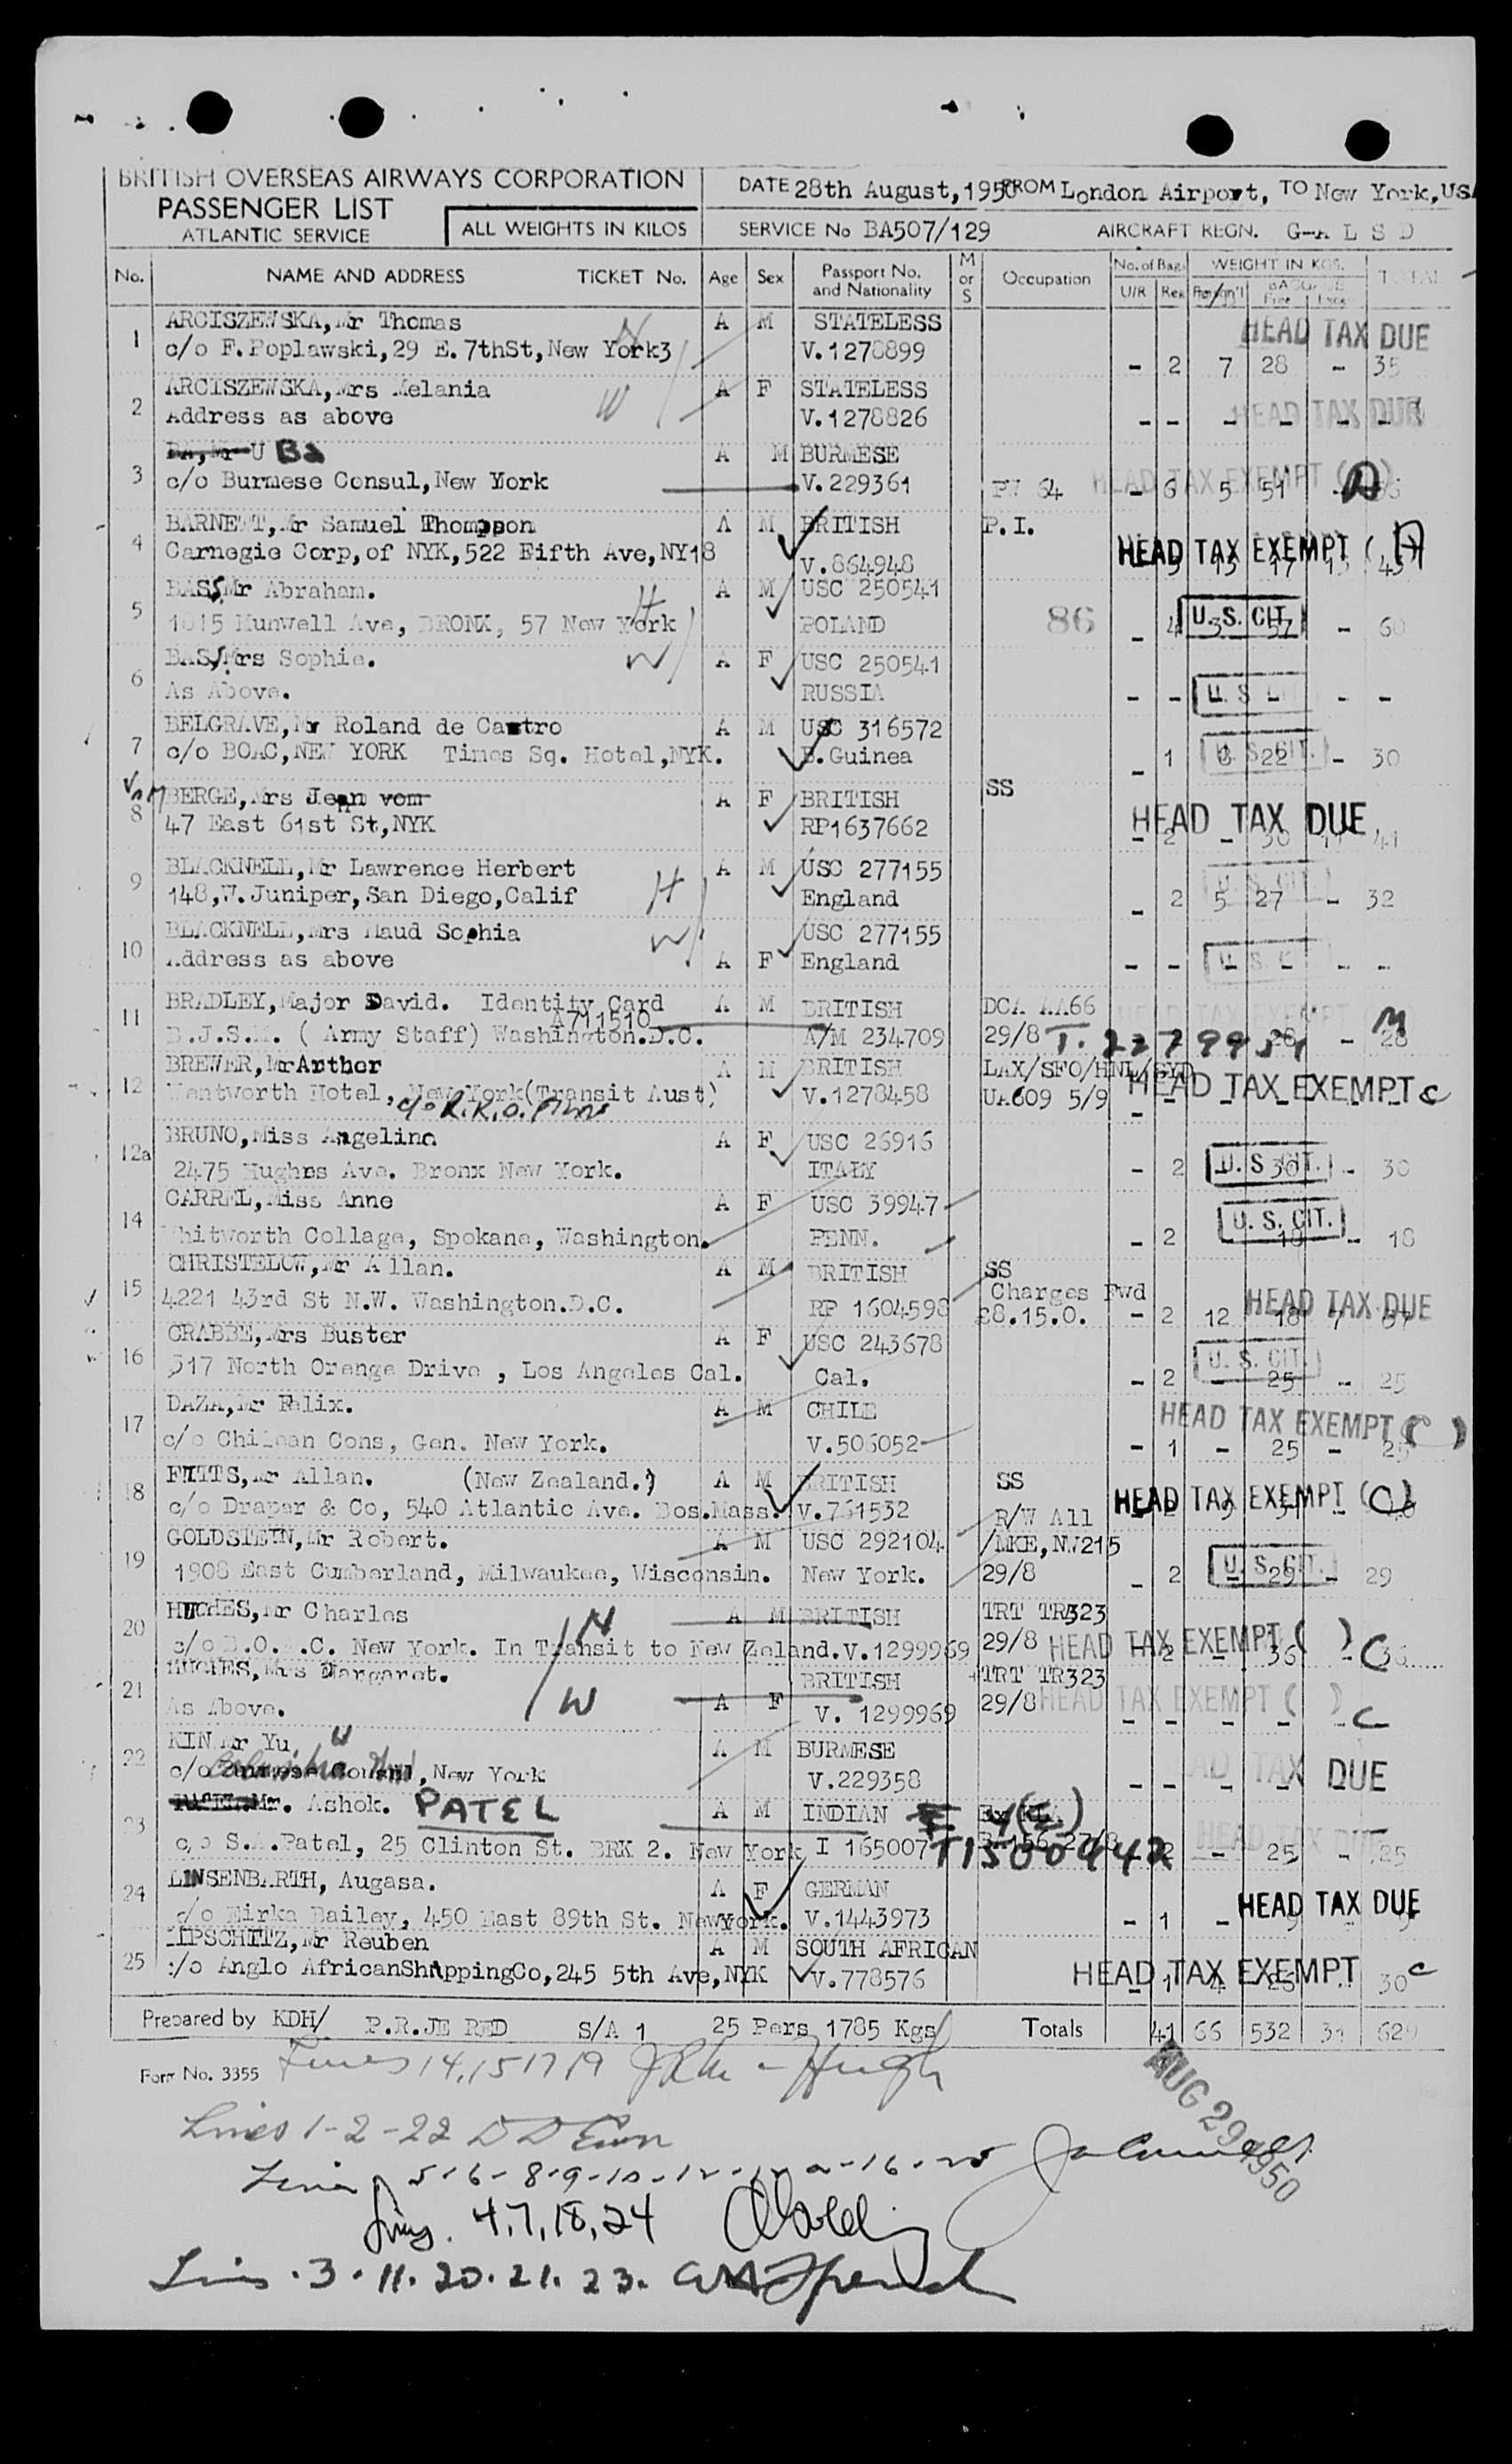 BRITISH OVERSEAS AIRWAYS CORPORATION
PASSENGER LIST
ATLANTIC SERVICE
ALL WEIGHTS IN KILOS
DATE 28th August, 1950 FROM London Airport, TO New York, USA
SERVICE No BA507/129 AIRCRAFT REGN. G-A L S D
No. NAME AND ADDRESS TICKET No. Age Sex Passport No. and Nationality M or S Occupation No. of Bags U/R Reg WEIGHT IN KGS. Person'l BAGGAGE Free TOTAL
1 ARCISZEWSKA, Mr Thomas A M STATELESS HEAD TAX DUE
c/o F. Poplawski, 29 E. 7thSt, New York3 V.1278899 - 2 7 28 - 35
2 ARCISZEWSKA, Mrs Melania W A F STATELESS
Address as above V.1278826 - - - HEAD TAX DUE
3 BA, Mr U Ba A M BURMESE
c/o Burmese Consul, New York V.229361 PW 64 HEAD TAX EXEMPT - 6 5 51
4 BARNETT, Mr Samuel Thompson A M BRITISH P.I.
Carnegie Corp, of NYK, 522 Fifth Ave, NY18 V.864948 HEAD TAX EXEMPT
5 BASS, Mr Abraham. H A M USC 250541
1015 Munwell Ave, BRONX, 57 New York POLAND 86 - 4 3 57 - 60 U.S. CIT.
6 BASS, Mrs Sophie. W A F USC 250541
As Above. RUSSIA - - U.S. - - -
7 BELGRAVE, Mr Roland de Castro A M USC 316572
c/o BOAC, NEW YORK Times Sq. Hotel, NYK. B.Guinea - 1 8 22 - 30 U.S. CIT.
8 BERGE, Mrs Jean vom A F BRITISH SS
47 East 61st St, NYK RP1637662 HEAD TAX DUE - 2 - 30 41
9 BLACKNELL, Mr Lawrence Herbert H A M USC 277155 U.S. CIT.
148, W. Juniper, San Diego, Calif England - 2 5 27 - 32
10 BLACKNELL, Mrs Maud Sophia W USC 277155
Address as above A F England - - - - - -
11 BRADLEY, Major David. Identity Card A M BRITISH DCA AA66
A711510
B.J.S.M. ( Army Staff) Washington.D.C. A/M 234709 29/8 28 - 28 M
12 BREWER, Mr Arthor A M BRITISH LAX/SFO/HNL/SYD
Wentworth Hotel, New York (Transit Aust) V.1278458 UA609 5/9 HEAD TAX EXEMPT C
c/o R.K.O. Films
12a BRUNO, Miss Angelina A F USC 26916
2475 Hughes Ave. Bronx New York. ITALY - 2 U.S. CIT. 30 - 30
14 CARREL, Miss Anne A F USC 39947 U.S. CIT.
Whitworth Collage, Spokane, Washington. PENN. - 2 - 18 - 18
15 CHRISTELOW, Mr Allan. A M BRITISH SS
Charges Fwd
4221 43rd St N.W. Washington.D.C. RP 1604598 £8.15.0. - 2 12 18 7 37 HEAD TAX DUE
16 CRABBE, Mrs Buster A F USC 243678 U.S. CIT.
317 North Orange Drive , Los Angeles Cal. Cal. - 2 - 25 - 25
17 DAZA, Mr Felix. A M CHILE HEAD TAX EXEMPT (C)
c/o Chilean Cons, Gen. New York. V.506052 - 1 - 25 - 25
18 FITTS, Mr Allan. (New Zealand.) A M BRITISH SS
c/o Draper & Co, 540 Atlantic Ave. Bos.Mass. V.761532 R/W All HEAD TAX EXEMPT (C)
19 GOLDSTEIN, Mr Robert. A M USC 292104 /MKE, NW215
1908 East Cumberland, Milwaukee, Wisconsin. New York. 29/8 - 2 - 29 - 29 U.S. CIT.
20 HUGHES, Mr Charles H A M BRITISH TRT TR323
c/o B.O.A.C. New York. In Transit to New Zeland. V.1299969 29/8 HEAD TAX EXEMPT ( ) C - 2 - 36 - 36
21 HUGHES, Mrs Margaret. BRITISH TRT TR323
As Above. W A F V. 1299969 29/8 HEAD TAX EXEMPT ( ) C - - - - -
22 KIN Mr Yu, U A M BURMESE
c/o Burmese Consul, New York V.229358 - - - TAX DUE
23 Mr. Ashok. PATEL A M INDIAN
c/o S.A.Patel, 25 Clinton St. BRK 2. New York I 165007 T1500442 2 - 25 - 25 HEAD TAX DUE
24 LINSENBARTH, Augasa. A F GERMAN
c/o Mirka Bailey, 450 East 89th St. New York. V.1443973 - 1 - 9 HEAD TAX DUE
25 LIPSCHITZ, Mr Reuben A M SOUTH AFRICAN
c/o Anglo AfricanShippingCo, 245 5th Ave, NYK V.778576 HEAD TAX EXEMPT C - 1 4 26 30
Prepared by KDH/ P.R.JE RED S/A 1 25 Pers 1785 Kgs Totals 41 66 532 31 629
Form No. 3355 Lines 14,15 17 19
AUG 29 1950
Lines 1-2-22
Lines 5-6-8-9-10-12-12a-16-25
Lines. 4,7,18,24
Lines .3.11.20.21.23.